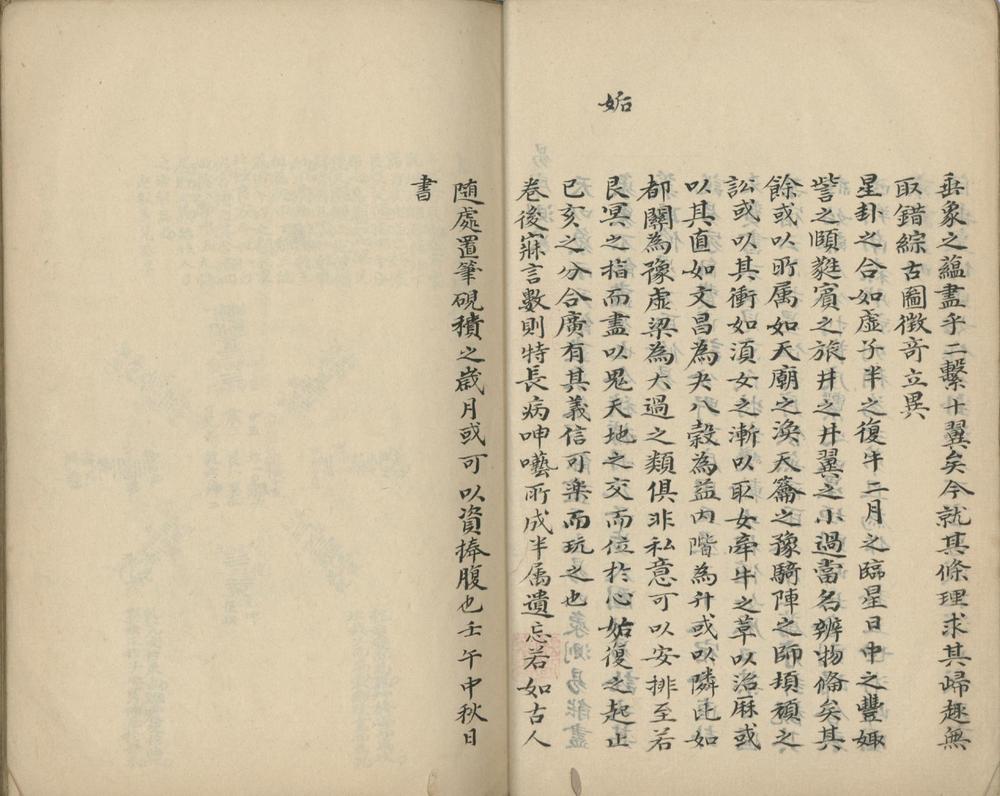 垂象之蘊盡乎二繫十翼矣今就其條理求其歸趣無
取錯綜古圖徴奇立異
星卦之合如虛子半之復牛二月之臨星日中之豐娵
訾之頤蕤賓之旅井之井翼之小過當名辨物俻矣其
餘或以所属如天廟之渙天籥之豫騎陣之師頓頑之
訟或以其衝如湏女之漸以取女牽牛之革以治厤或
以其直如文昌為夬八穀為益內階為升或以隣比如
都關為豫虛梁為大過之類俱非私意可以安排至若
艮冥之指而盡以鬼天地之交而位於心姤復之起止
巳亥之分合廣有其義信可樂而玩之也
卷後寐言數則特長病呻囈所成半属遺忘若如古人
随處置筆硯積之歲月或可以資捧腹也壬午中秋日
書
姤